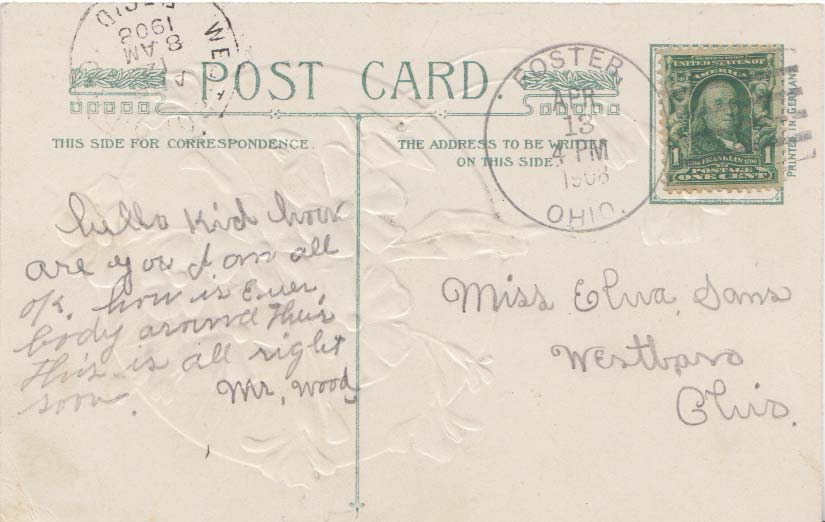 POST CARD.
THIS SIDE FOR CORRESPONDENCE.
THE ADDRESS TO BE WRITTEN
ON THIS SIDE.
8 AM
1908
FOSTER,
APR
13
4 PM
1908
OHIO.
UNITED STATES OF
AMERICA
1706 FRANKLIN 1790
1 POSTAGE 1
ONE CENT
PRINTED IN GERMANY
hello Kid how
are you I am all
ok. how is Ever
body around Their
This is all right
soon. Mr. Wood
Miss Elva Sans
Westboro
Ohio.